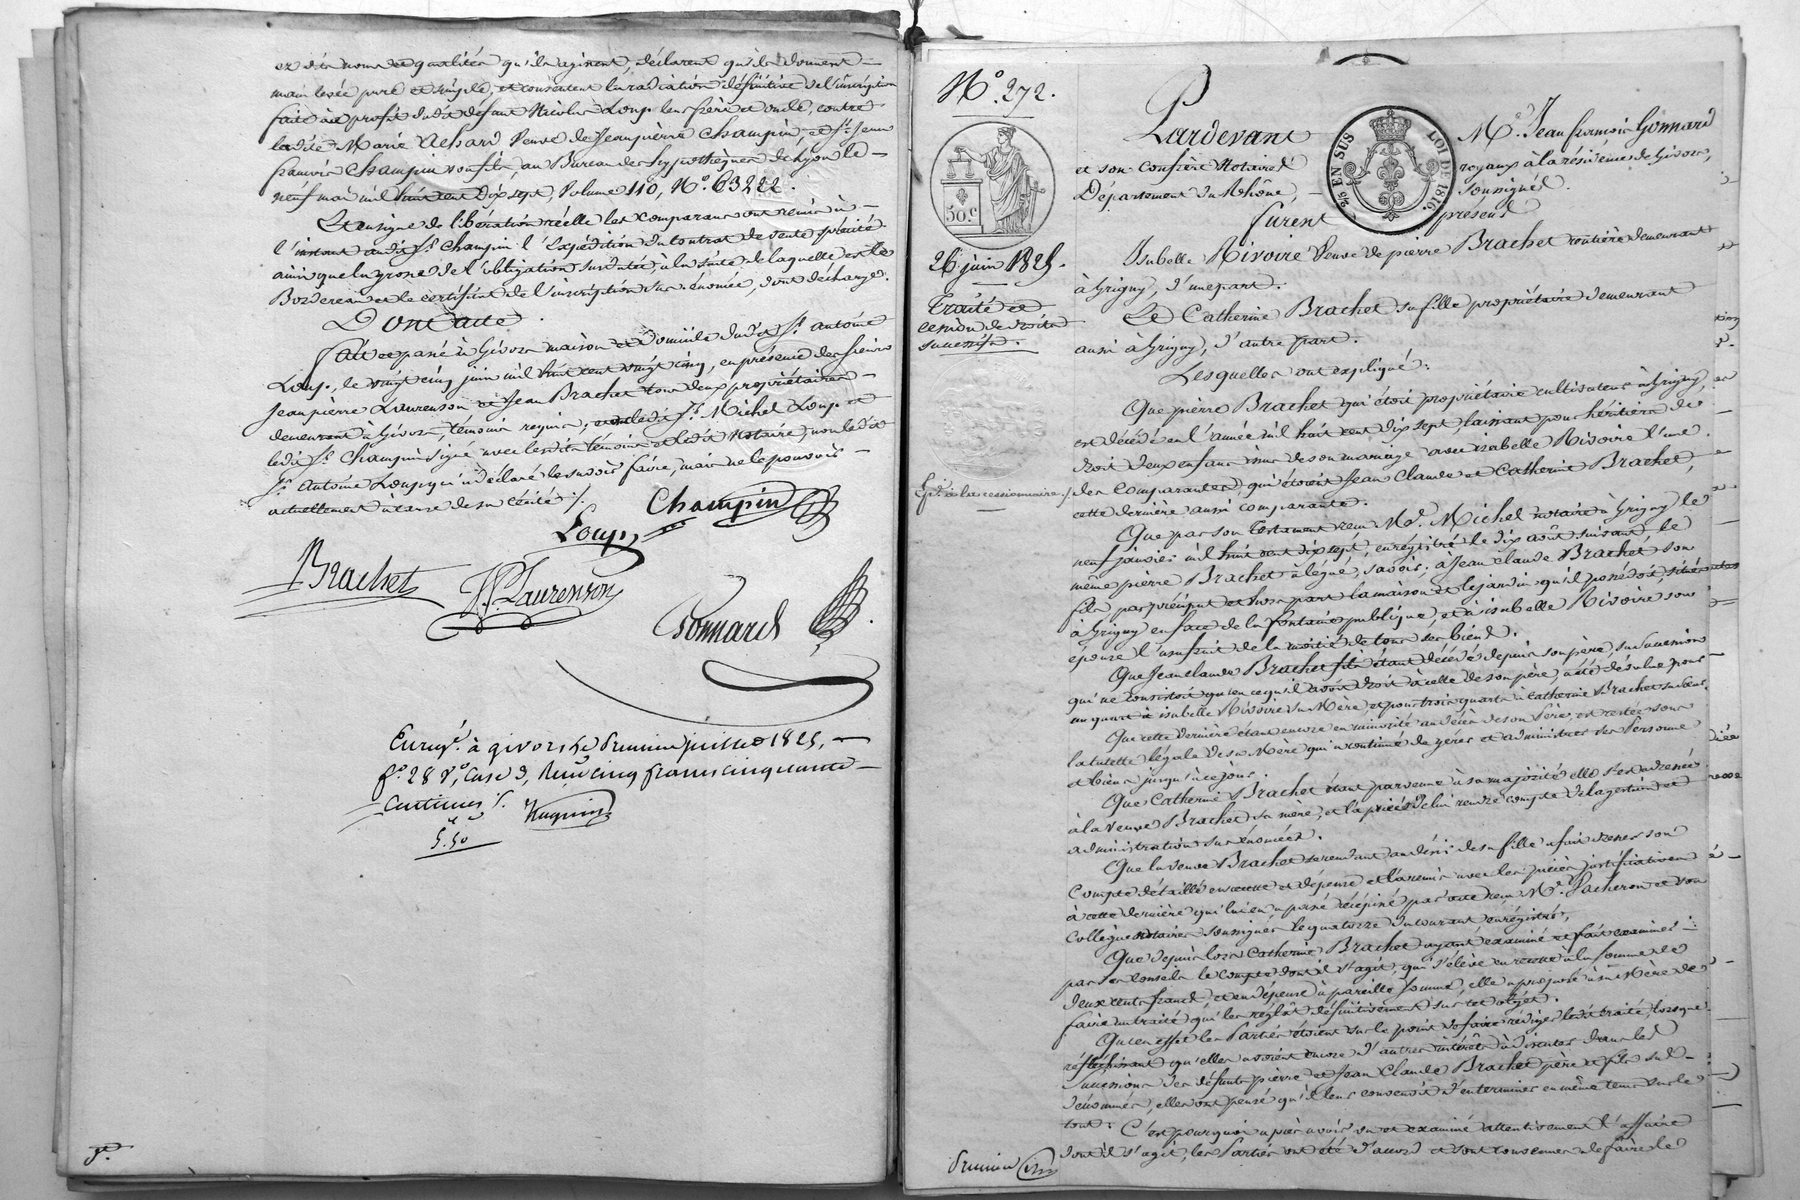 ez dits noms et qualités qu'ils agissent, déclarent qu'ils donnent
main levée pure et simple, et consentent la radiation définitive de l'inscription
faite au profit dudit défunt Nicolas Loup leur frère et oncle, contre
ladite Marie Achard Veuve de Jeanpierre Champin, et Sr. Jean
françois Champin son fils, au Bureau des hypothèques de Lyon le
neuf mai mil huit cent Dix sept, Volume 110, No. 63222.
Et en signe de libération réelle les comparans ont remis à
l'instant audit Sr. Champin l'Expédition du Contrat de vente précité
ainsi que la grosse de l'obligation susdatée, à la suite de laquelle est le
Bordereau et le certificat de l'inscription sus énoncée, dont décharge.
Dont acte.
fait et passé à Givors maison et Domicile dudit Sr. antoine
Loup, le vingt cinq juin mil huit cent vingt cinq, en présence des Sieurs
Jeanpierre Laurenson et Jean Brachet tous deux propriétaires
demeurant à Givors, témoins requis, et ledit Sr. Michel Loup et
ledit Sr. Champin signé avec lesdits témoins et ledit Notaire, non ledit
Sr. Antoine Loup qui a déclaré le savoir faire, mais ne le pouvoir
actuellement à cause de sa cécité ./.
Champin
Loup
Brachet
J. P. Laurenson
Gonnard
Enregé. à givors le Premier juillet 1825,
fo. 28 Vo. Case 9, Reçu cinq francs cinquante
centimes ./.
5.50
No. 272.
Pardevant Me. Jean françois Gonnard
et son confrère Notaires royaux à la résidence de Givors,
Département du Rhône, soussignés.
Furent présens
2/10 EN SUS
LOI DE 1816.
50.c
26 juin 1825.
Traité et
cession de droits
successifs.
Isabelle Rivoire Veuve de pierre Brachet rentière demeurant
à Grigny, d'une part.
Et Catherine Brachet sa fille propriétaire demeurant
aussi à Grigny, d'autre part.
Lesquelles ont expliqué:
Que pierre Brachet qui étoit propriétaire cultivateur à Grigny,
est décédé en l'année mil huit cent dix sept laissant pour héritiers de
droit deux enfans issus de son mariage avec isabelle Rivoire l'une
des Comparantes, qui étoient Jean Claude et Catherine Brachet,
cette dernière aussi comparante.
Epon. à la cessionnaire ./.
Que par son Testament reçu Me. Michel notaire à Grigny le
neuf janvier mil huit cent dix sept, enrégistré le dix août suivant, le
même pierre Brachet a légué, savoir; à Jean Claude Brachet son
fils par préciput et hors part la maison et le jardin qu'il possédoit, situés
à Grigny en face de la fontaine publique, et à isabelle Rivoire son
épouse l'usufruit de la moitié de tous ses biens.
Que Jean Claude Brachet fils étant décédé depuis son père, sa succession
qui ne consistoit qu'en ce qu'il avoit droit à celle de son père, a été dévolue pour
un quart à isabelle Rivoire sa Mère, et pour trois quarts à Catherine Brachet sa sœur.
Que cette dernière étant encore en minorité au décès de son Père, est restée sous
la tutelle légale de sa Mère qui a continué de gérer et administrer ses Personne
et biens jusqu'à ce jour.
Que Catherine Brachet étant parvenue à sa majorité elle s'est adressée
à la Veuve Brachet sa mère, et l'a priée de lui rendre compte de la gestion et
administration sus énoncées.
Que la Veuve Brachet se rendant au désir de sa fille a fait dresser son
Compte détaillé en recette et dépense et l'a remis avec les pièces justificatives
à cette dernière qui lui en a passé récépissé par acte reçu Me. Pacheron et son
Collègue notaires soussignés le quatorze du courant enrégistré,
Que depuis lors Catherine Brachet ayant examiné et fait examiner
par ses Conseils le compte dont il s'agit, qui s'élève en recette à la somme de
deux cents francs, et en dépense à pareille somme, elle a proposé à sa Mère de
faire un traité qui les réglât définitivement sur cet objet.
Qu'en effet les Parties étoient sur le point de faire rédiger ledit traité, lorsque
réfléchissant qu'elles avoient encore d'autres intérêts à discuter dans les
Successions des défunts pierre et Jean Claude Brachet père et fils sus-
dénommés, elles ont pensé qu'il leur convenoit d'en terminer en même tems sur le
tout: C'est pourquoi après avoir vu et examiné attentivement l'affaire
dont il s'agit, les Parties ont été d'accord et sont convenues de faire le
Premier